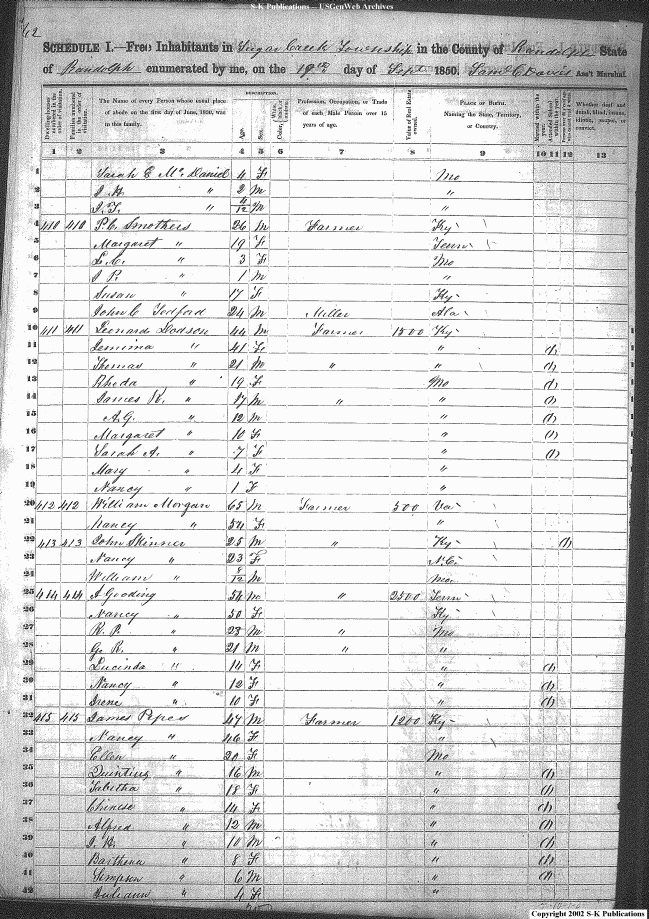 S-K Publications – USGenWeb Archives
62
SCHEDULE I.—Free Inhabitants in Sugar Creek Township in the County of Randolph State
of Randolph enumerated by me, on the 19th day of Sept 1850. Saml C Davis Ass't Marshal.
DESCRIPTION.
The Name of every Person whose usual place of abode on the first day of June, 1850, was in this family.
Age.
Sex.
Profession, Occupation, or Trade of each Male Person over 15 years of age.
Value of Real Estate owned.
PLACE OF BIRTH. Naming the State, Territory, or Country.
Whether deaf and dumb, blind, insane, idiotic, pauper, or convict.
1 2 3 4 5 6 7 8 9 10 11 12 13
1 Sarah E McDaniel 4 F Mo
2 " 2 M "
3 J. F. " 4/12 M "
4 410 410 P. C. Smothers 26 M Farmer Ky
5 Margaret " 19 F Tenn
6 L. C. " 3 F Mo
7 J R. " 1 M "
8 Susan " 17 F Ky
9 John C Tedford 24 M Miller Ala
10 411 411 Leonard Dodson 44 M Farmer 1500 Ky
11 Jemima " 41 F " (1)
12 Thomas " 21 M " " (1)
13 Rhoda " 19 F Mo (1)
14 James K. " 17 M " " (1)
15 A. G. " 12 M " (1)
16 Margaret " 10 F " (1)
17 Sarah A. " 7 F " (1)
18 Mary " 4 F "
19 Nancy " 1 F "
20 412 412 William Morgan 65 M Farmer 500 Va
21 Nancy " 54 F "
22 413 413 John Skinner 25 M " Ky (1)
23 Nancy " 23 F N.C.
24 William " 8/12 M Mo
25 414 414 A Gooding 54 M " 2500 Tenn
26 Nancy " 50 F Ky
27 R. P. " 23 M " Mo
28 G. R. " 21 M " "
29 Lucinda " 14 F " (1)
30 Nancy " 12 F " (1)
31 Irene " 10 F " (1)
32 415 415 James Pipes 47 M Farmer 1200 Ky
33 Nancy " 46 F "
34 Ellen " 20 F Mo
35 Quintius " 16 M " (1)
36 Tabitha " 18 F " (1)
37 Chinese " 14 F " (1)
38 Alfred " 12 M " (1)
39 J. R. " 10 M " (1)
40 Barthena " 8 F " (1)
41 Simpson " 6 M " (1)
42 Juliann " 4 F "
Copyright 2002 S-K Publications